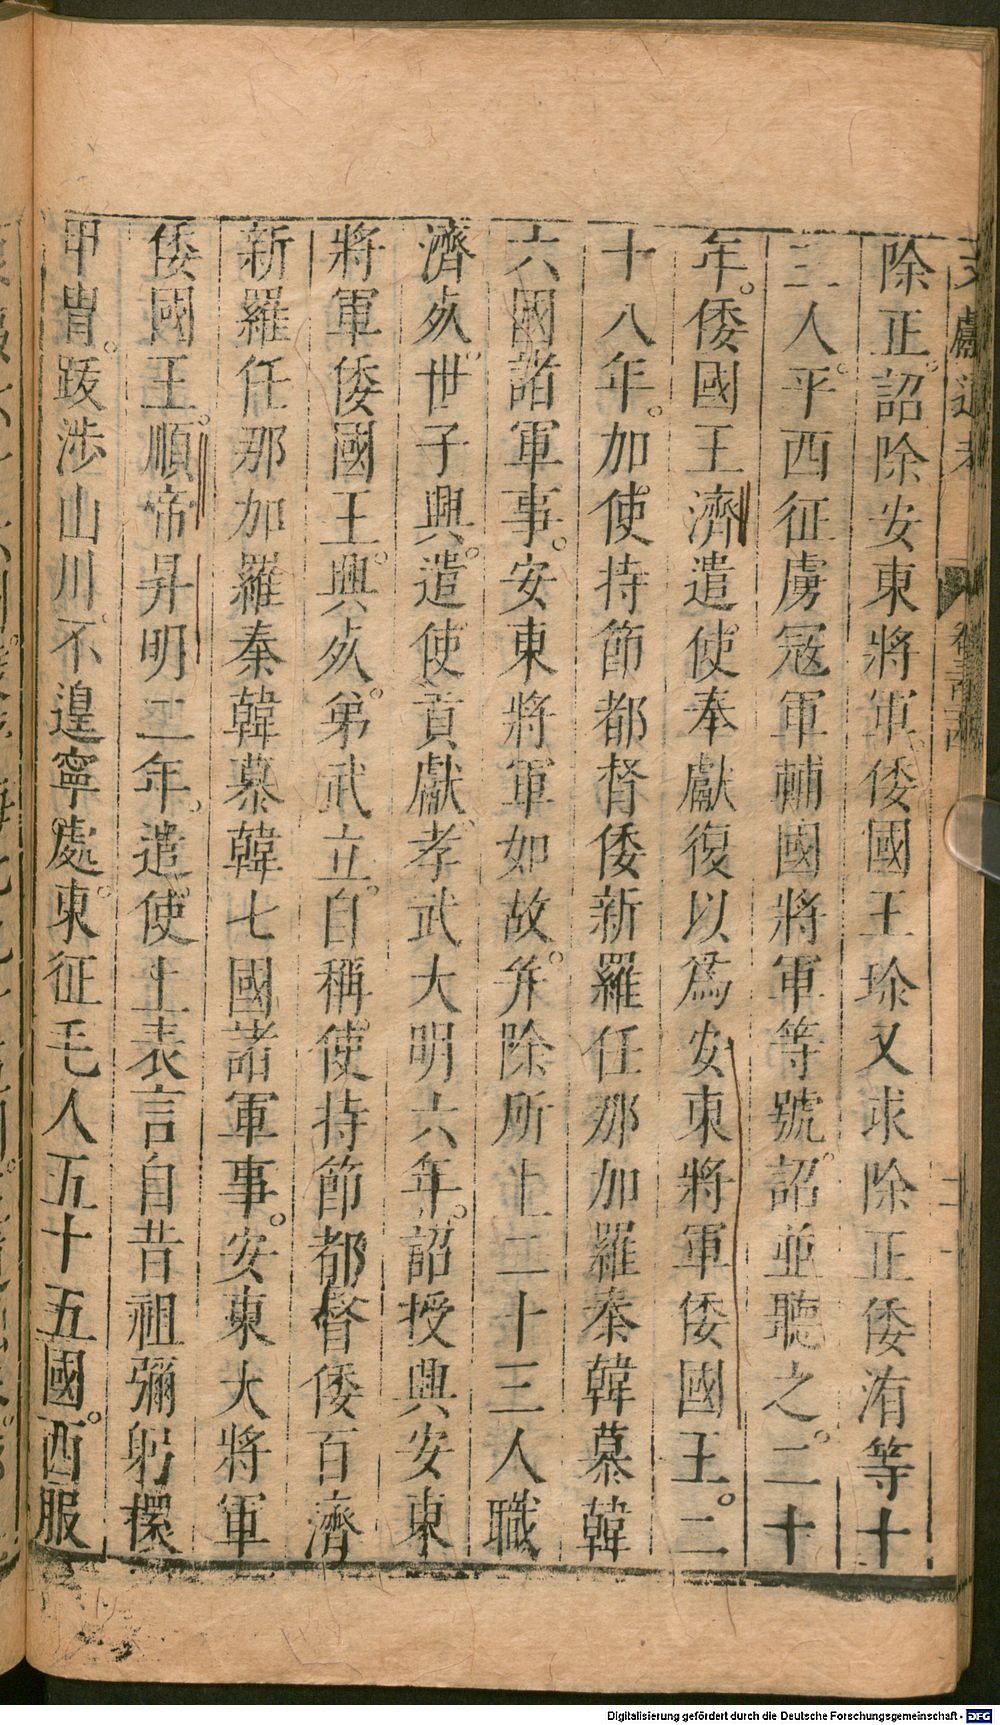 除正詔除安東將軍倭國王珍又求除正倭洧等十
三人平西征虜冠軍輔國將軍等號詔並聽之二十
年倭國王濟遣使奉獻復以爲安東將軍倭國王二
十八年加使持節都督倭新羅任那加羅秦韓慕韓
六國諸軍事安東將軍如故并除所上二十三人職
濟死世子興遣使貢獻孝武大明六年詔授興安東
將軍倭國王興死弟武立自稱使持節都督倭百濟
新羅任那加羅秦韓慕韓七國諸軍事安東大將軍
倭國王順帝昇明二年遣使上表言自昔祖彌躬擐
甲冑跋涉山川不遑寧處東征毛人五十五國西服
Digitalisierung gefördert durch die Deutsche Forschungsgemeinschaft - DFG